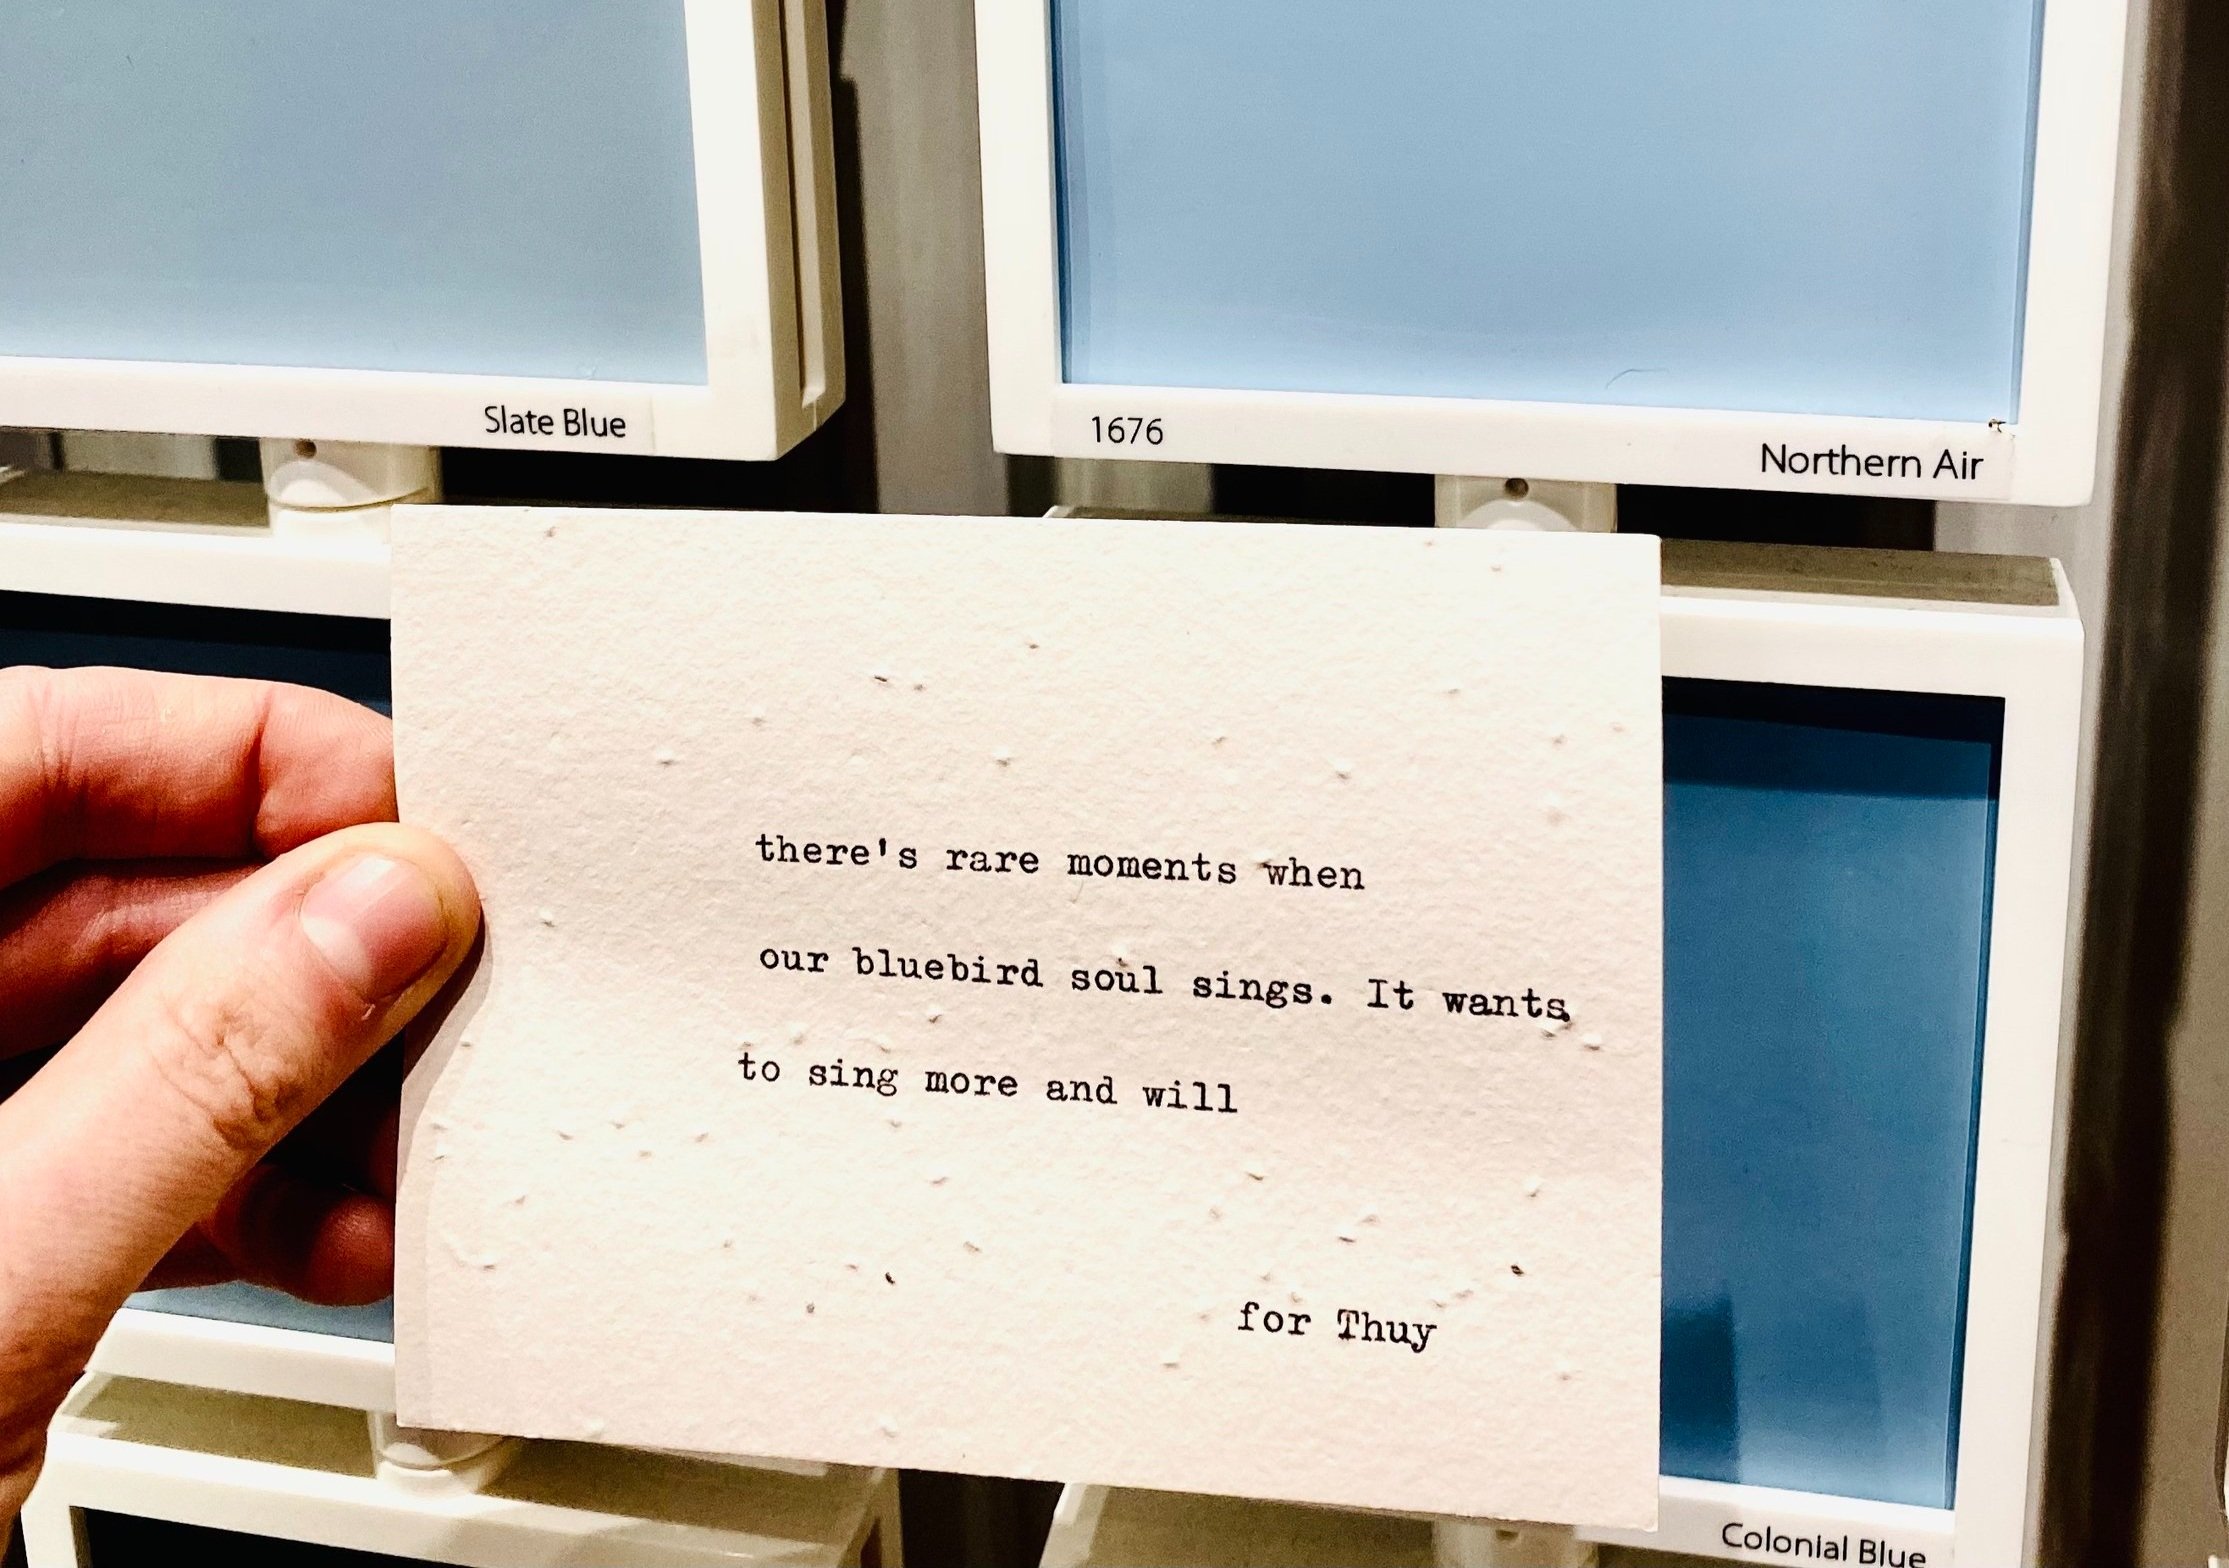 Slate Blue
1676
Northern Air
there's rare moments when
our bluebird soul sings. It wants
to sing more and will
for Thuy
Colonial Blue